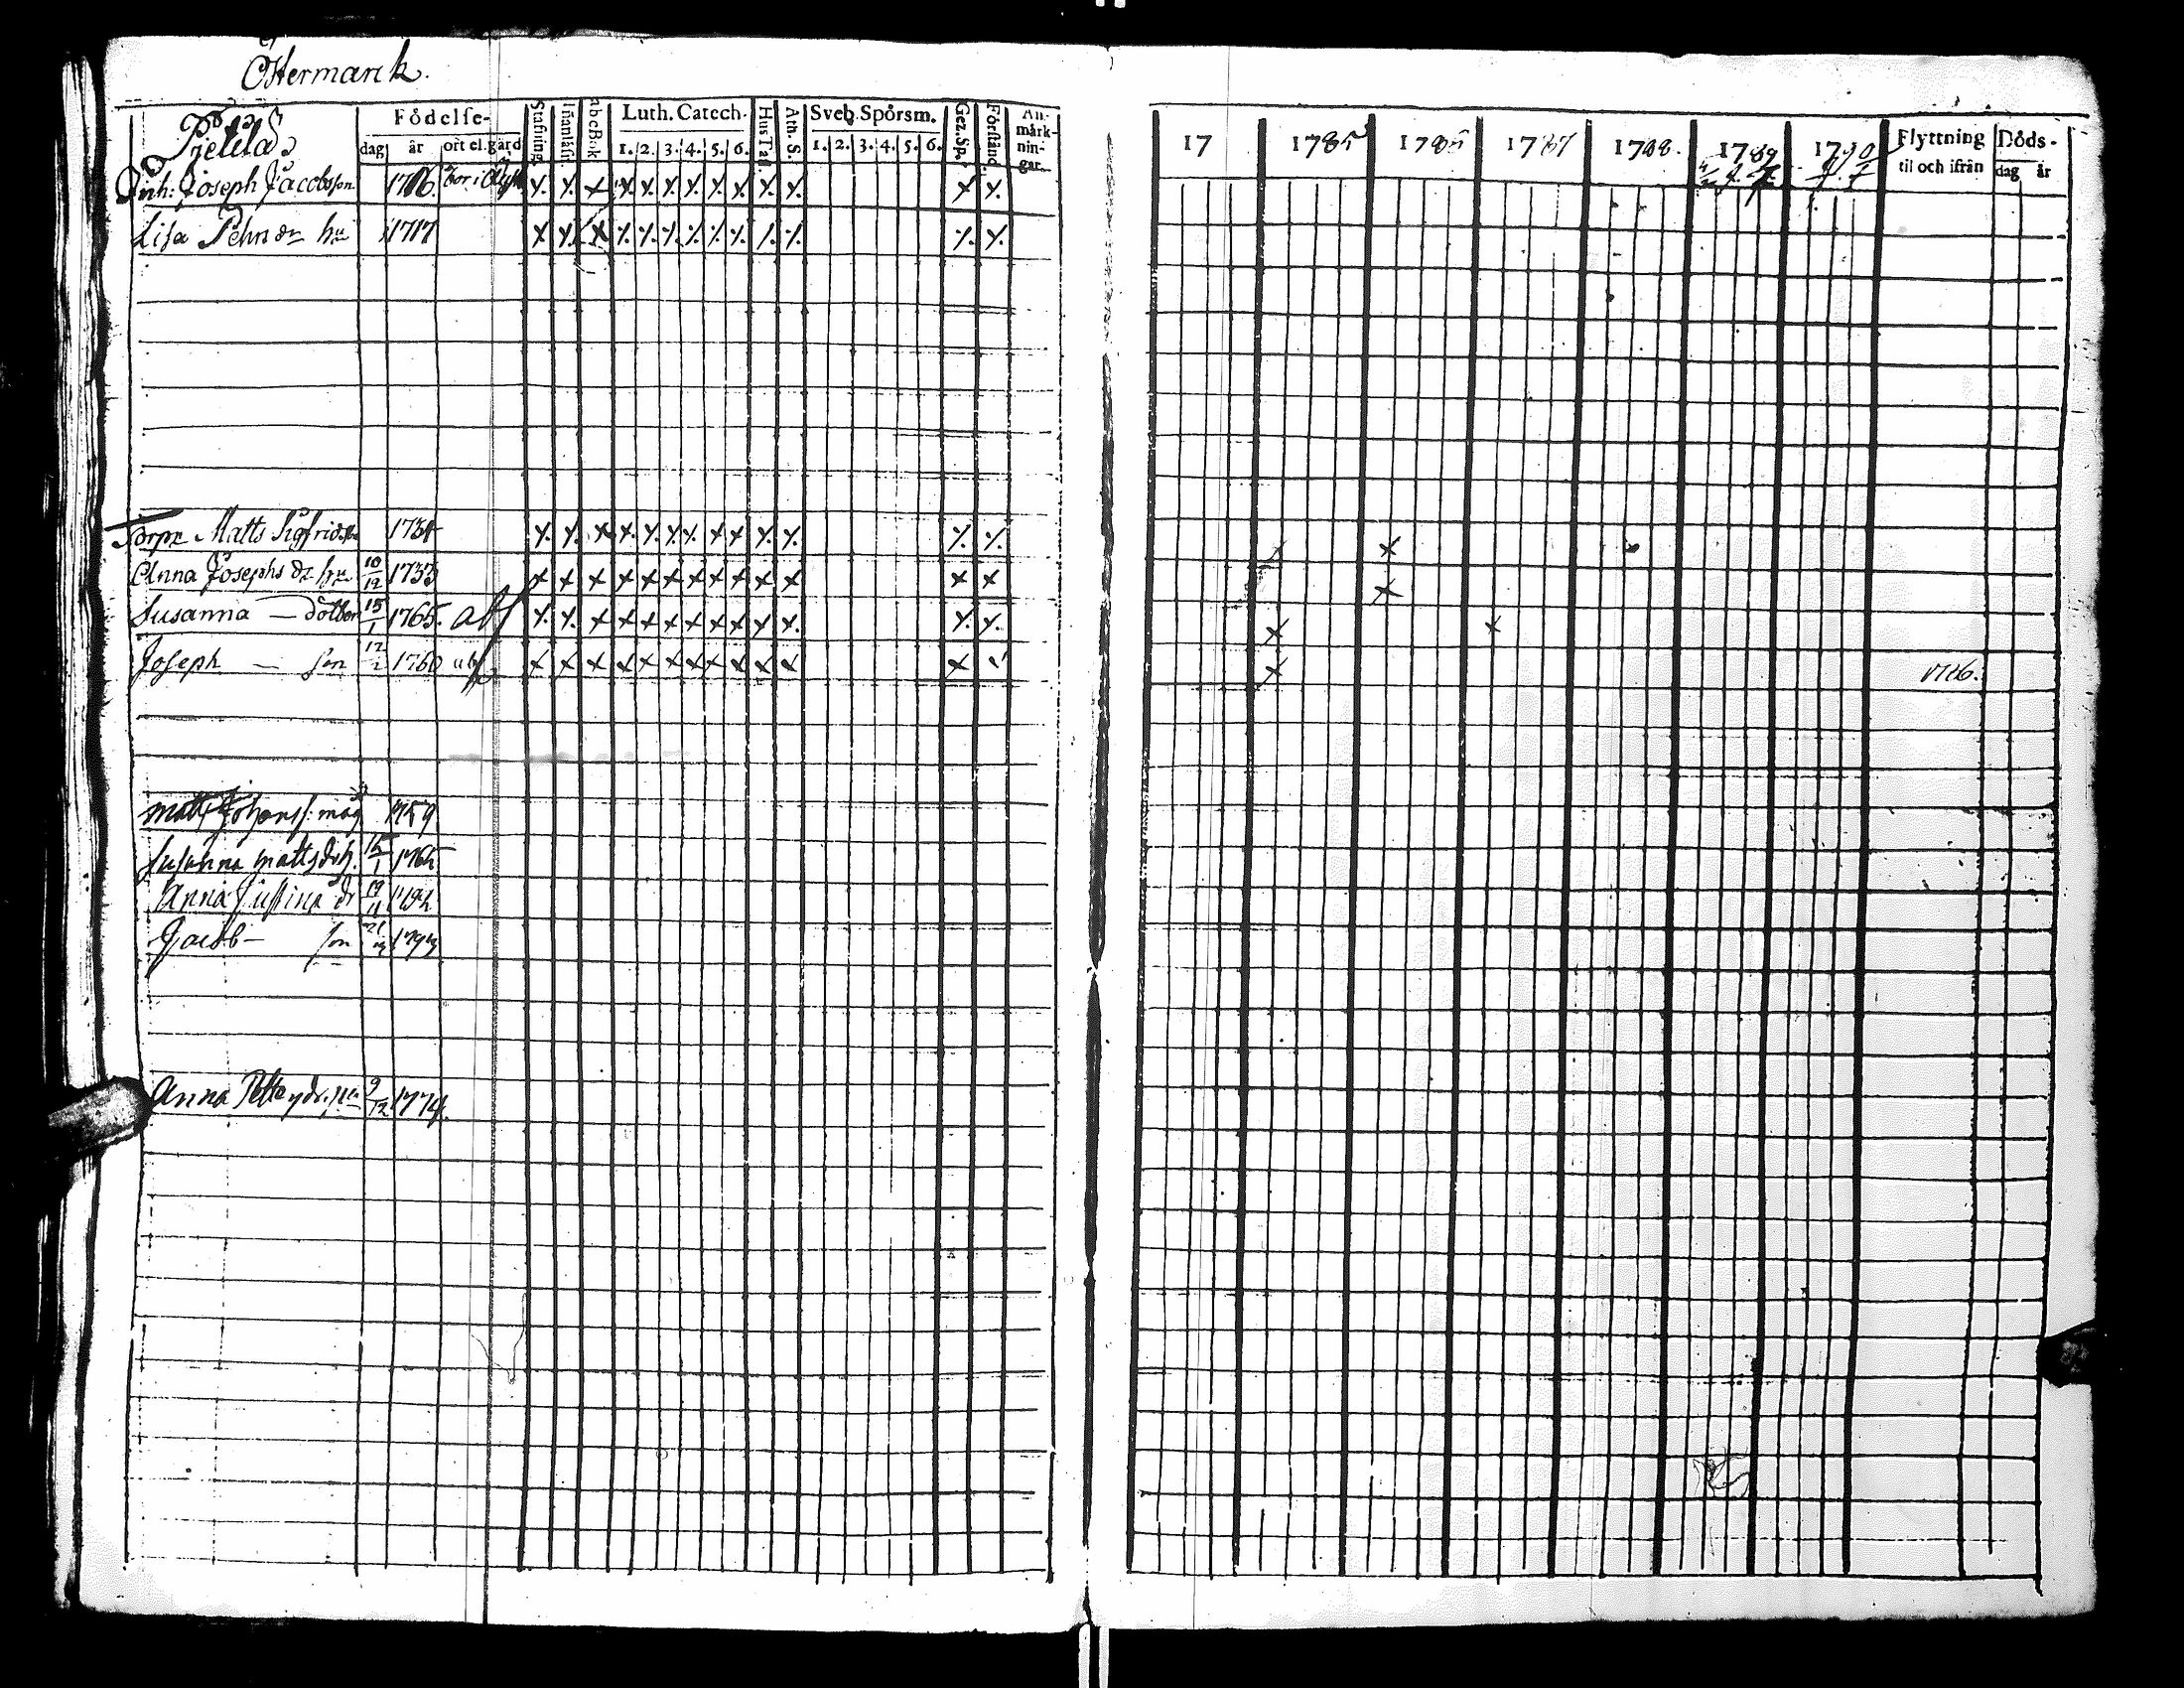 Östermark.
Fjelldå
Födelse-
dag år ort el. gård
Stafning. Iñanläsn. abcBok Luth. Catech. 1. 2. 3. 4. 5. 6. Hus Tafl. Ath. S. Sveb. Spörsm. 1. 2. 3. 4. 5. 6. Gez. Sp. Förstånd. An-märk-nin-gar.
Inh: Joseph Jacobsson 1706
Lisa Pehrs dr hu 1717
Torpr Matts Sigfridss. 1734
Anna Josephs dr hu 10/12 1733
Susanna — dotter 15/1 1765.
Joseph — son 12/2 1760
Matts Johanss: måg 1759
Susanna Mattsdr h. 15/1 1765
Anna Justina dr 19/11 1792
Jacob — son 21/3 1793
Anna Pettersdr. 9/12 1774.
17 1785 1786 1787 1788. 1789 1790 Flyttning til och ifrån Döds- dag år
1786.